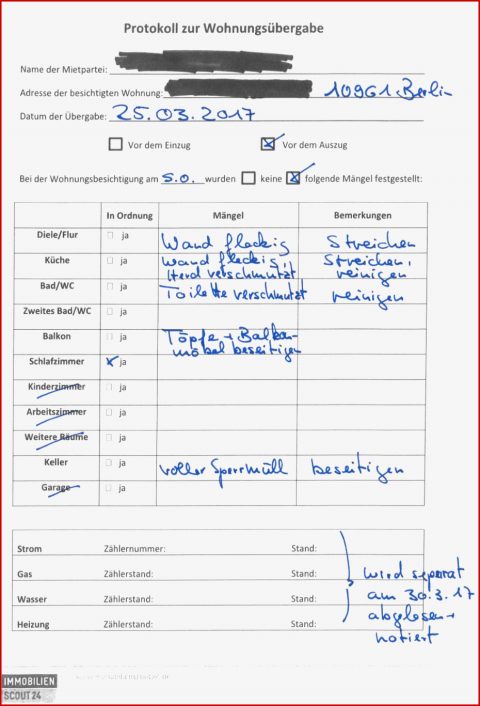 Protokoll zur Wohnungsübergabe
Name der Mietpartei:
Adresse der besichtigten Wohnung: 10961 Berlin
Datum der Übergabe: 25.03.2017
Vor dem Einzug Vor dem Auszug
Bei der Wohnungsbesichtigung am s.o. wurden keine folgende Mängel festgestellt:
In Ordnung Mängel Bemerkungen
Diele/Flur ja Wand fleckig Streichen
Küche ja Wand fleckig, Streichen,
Herd verschmutzt reinigen
Bad/WC ja Toilette verschmutzt reinigen
Zweites Bad/WC ja
Balkon ja Töpfe + Balkon-
möbel beseitigen
Schlafzimmer ja
Kinderzimmer ja
Arbeitszimmer ja
Weitere Räume ja
Keller ja voller Sperrmüll beseitigen
Garage ja
Strom Zählernummer: Stand:
Gas Zählerstand: Stand: wird separat
Wasser Zählerstand: Stand: am 30.3.17
abgelesen +
Heizung Zählerstand: Stand: notiert
IMMOBILIEN
SCOUT24